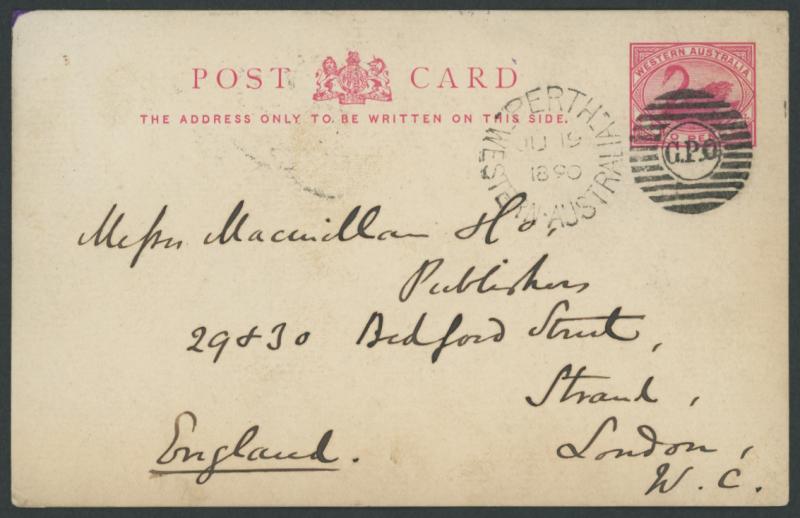 POST CARD
THE ADDRESS ONLY TO BE WRITTEN ON THIS SIDE.
WESTERN AUSTRALIA
PERTH
JU 19
1890
WESTERN·AUSTRALIA
G.P.O
Messrs Macmillan & Co,
Publishers
29 & 30 Bedford Street,
Strand,
London,
W. C.
England.